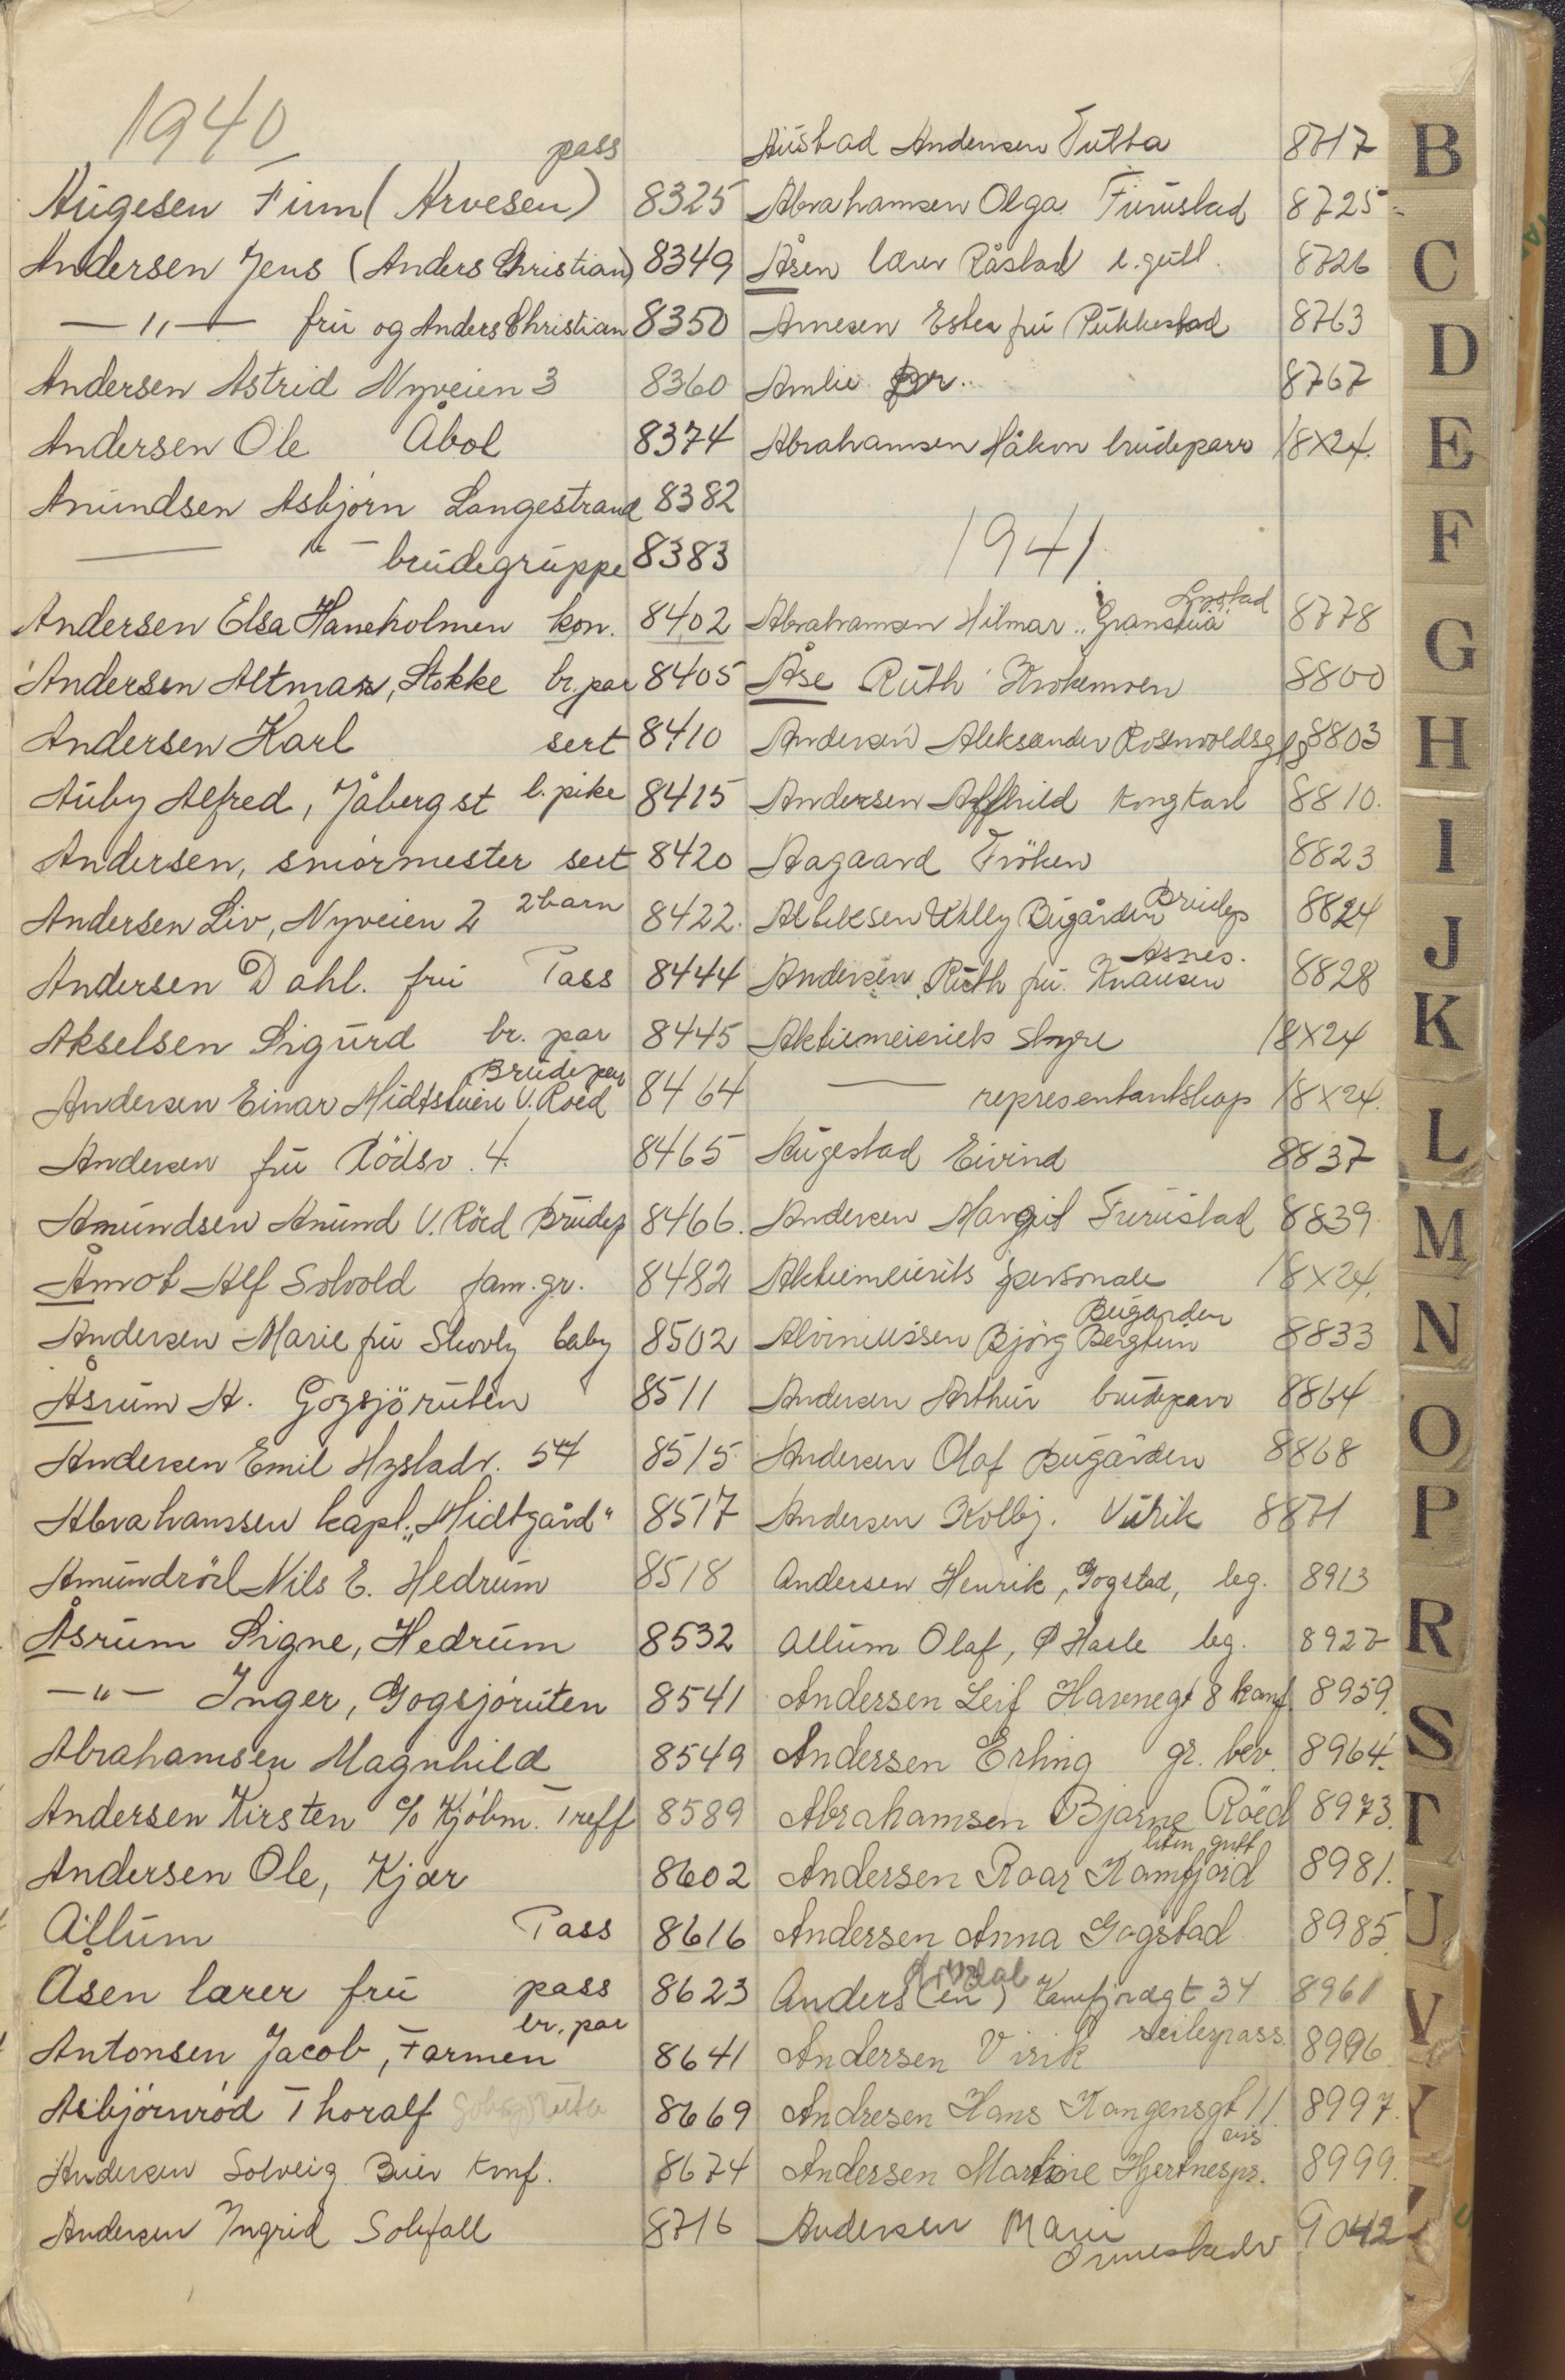 1940
pass
Augesen Finn (Arvesen) 8325
Andersen Jens (Anders Christian) 8349
— " — frú og Anders Christian 8350
Andersen Astrid Nyveien 3 8360
Andersen Ole Åbol 8374
Anundsen Asbjörn Langestrand 8382
— " — brudegruppe 8383
Andersen Elsa Haneholmen kon. 8402
Andersen Altmar, Stokke br. par 8405
Andersen Karl sert 8410
Auby Alfred, Jåberg st l. pike 8415
Andersen, smörmester sert 8420
Andersen Liv, Nyveien 2 2 barn 8422.
Andersen Dahl. fru Pass 8444
Akselsen Sigurd br. par 8445
Brudepar
Andersen Einar Midtstuen V. Roed 8464
Andersen fru Rödsv. 4. 8465
Amundsen Anund V. Röed Brudep 8466.
Åmot Alf Solvold fam. gr. 8482
Andersen Marie fru Skovly baby 8502
Åsrum A. Gogsjöruten 8511
Andersen Emil Hystadv. 54 8515
Abrahamssen kapl. „Midtgård" 8517
Amundröd Nils E. Hedrum 8518
Åsrum Signe, Hedrum 8532
— " — Inger, Gogsjöruten 8541
Abrahamsen Magnhild 8549
Andersen Kirsten c/o Kjöbm. Treff 8589
Andersen Ole, Kjær 8602
Allum Pass 8616
Åsen lærer fru pass 8623
br. par
Antonsen Jacob, Farmen 8641
Asbjörnröd Thoralf 8669
Andersen Solveig Buer konf. 8674
Andersen Ingrid Solfall 8716
Austad Andersen Tutta 8717
Abrahamsen Olga Furustad 8725
Åsen lærer Råstad l. gutt. 8726
Arnesen Ester fru Pukkestad 8763
Amlie 8767
Abrahamsen Håkon brudepar 18X24.
1941
Lystad
Abrahamsen Hilmar „Granstua" 8778
Åse Ruth Krokemoen 8800
Andersen Aleksander Rosenvoldsgt 8 8803
Andersen Affhild kong Karl 8810.
Aagaard Fröken 8823
Brudep
Albiksen Willy Bugården 8824
Asnes.
Andersen Ruth fru. Knausen 8828
Aktiemeieriets styre 18X24
— representantskap 18X24.
Augestad Eivind 8837
Andersen Margit Furustad 8839
Aktiemeieriets personale 18X24.
Bugården
Alvinussen Björg Bergtun 8833
Andersen Arthur brudepar 8864
Andersen Olaf Bugården 8868
Andersen Kolbj. Virik 8871
Andersen Henrik, Gogstad, leg. 8913
Allum Olaf, Ø Hasle leg. 8922
Andersen Leif Havnegt 8 konf. 8959.
Andersen Erling gr. bev. 8964.
Abrahamsen Bjarne Röed 8973.
liten gutt
Andersen Roar Kamfjord 8981.
Andersen Anna Gogstad 8985.
Anders(en) Kamfjordgt 34 8961
seilerpass
Andersen Virik 8996.
Andresen Hans Kongensgt 11. 8997.
Andersen Martine Hjertnespr. 8999.
Andersen Marie 9042
Ormestadv
B
C
D
E
F
G
H
I
J
K
L
M
N
O
P
R
S
T
U
V
Y